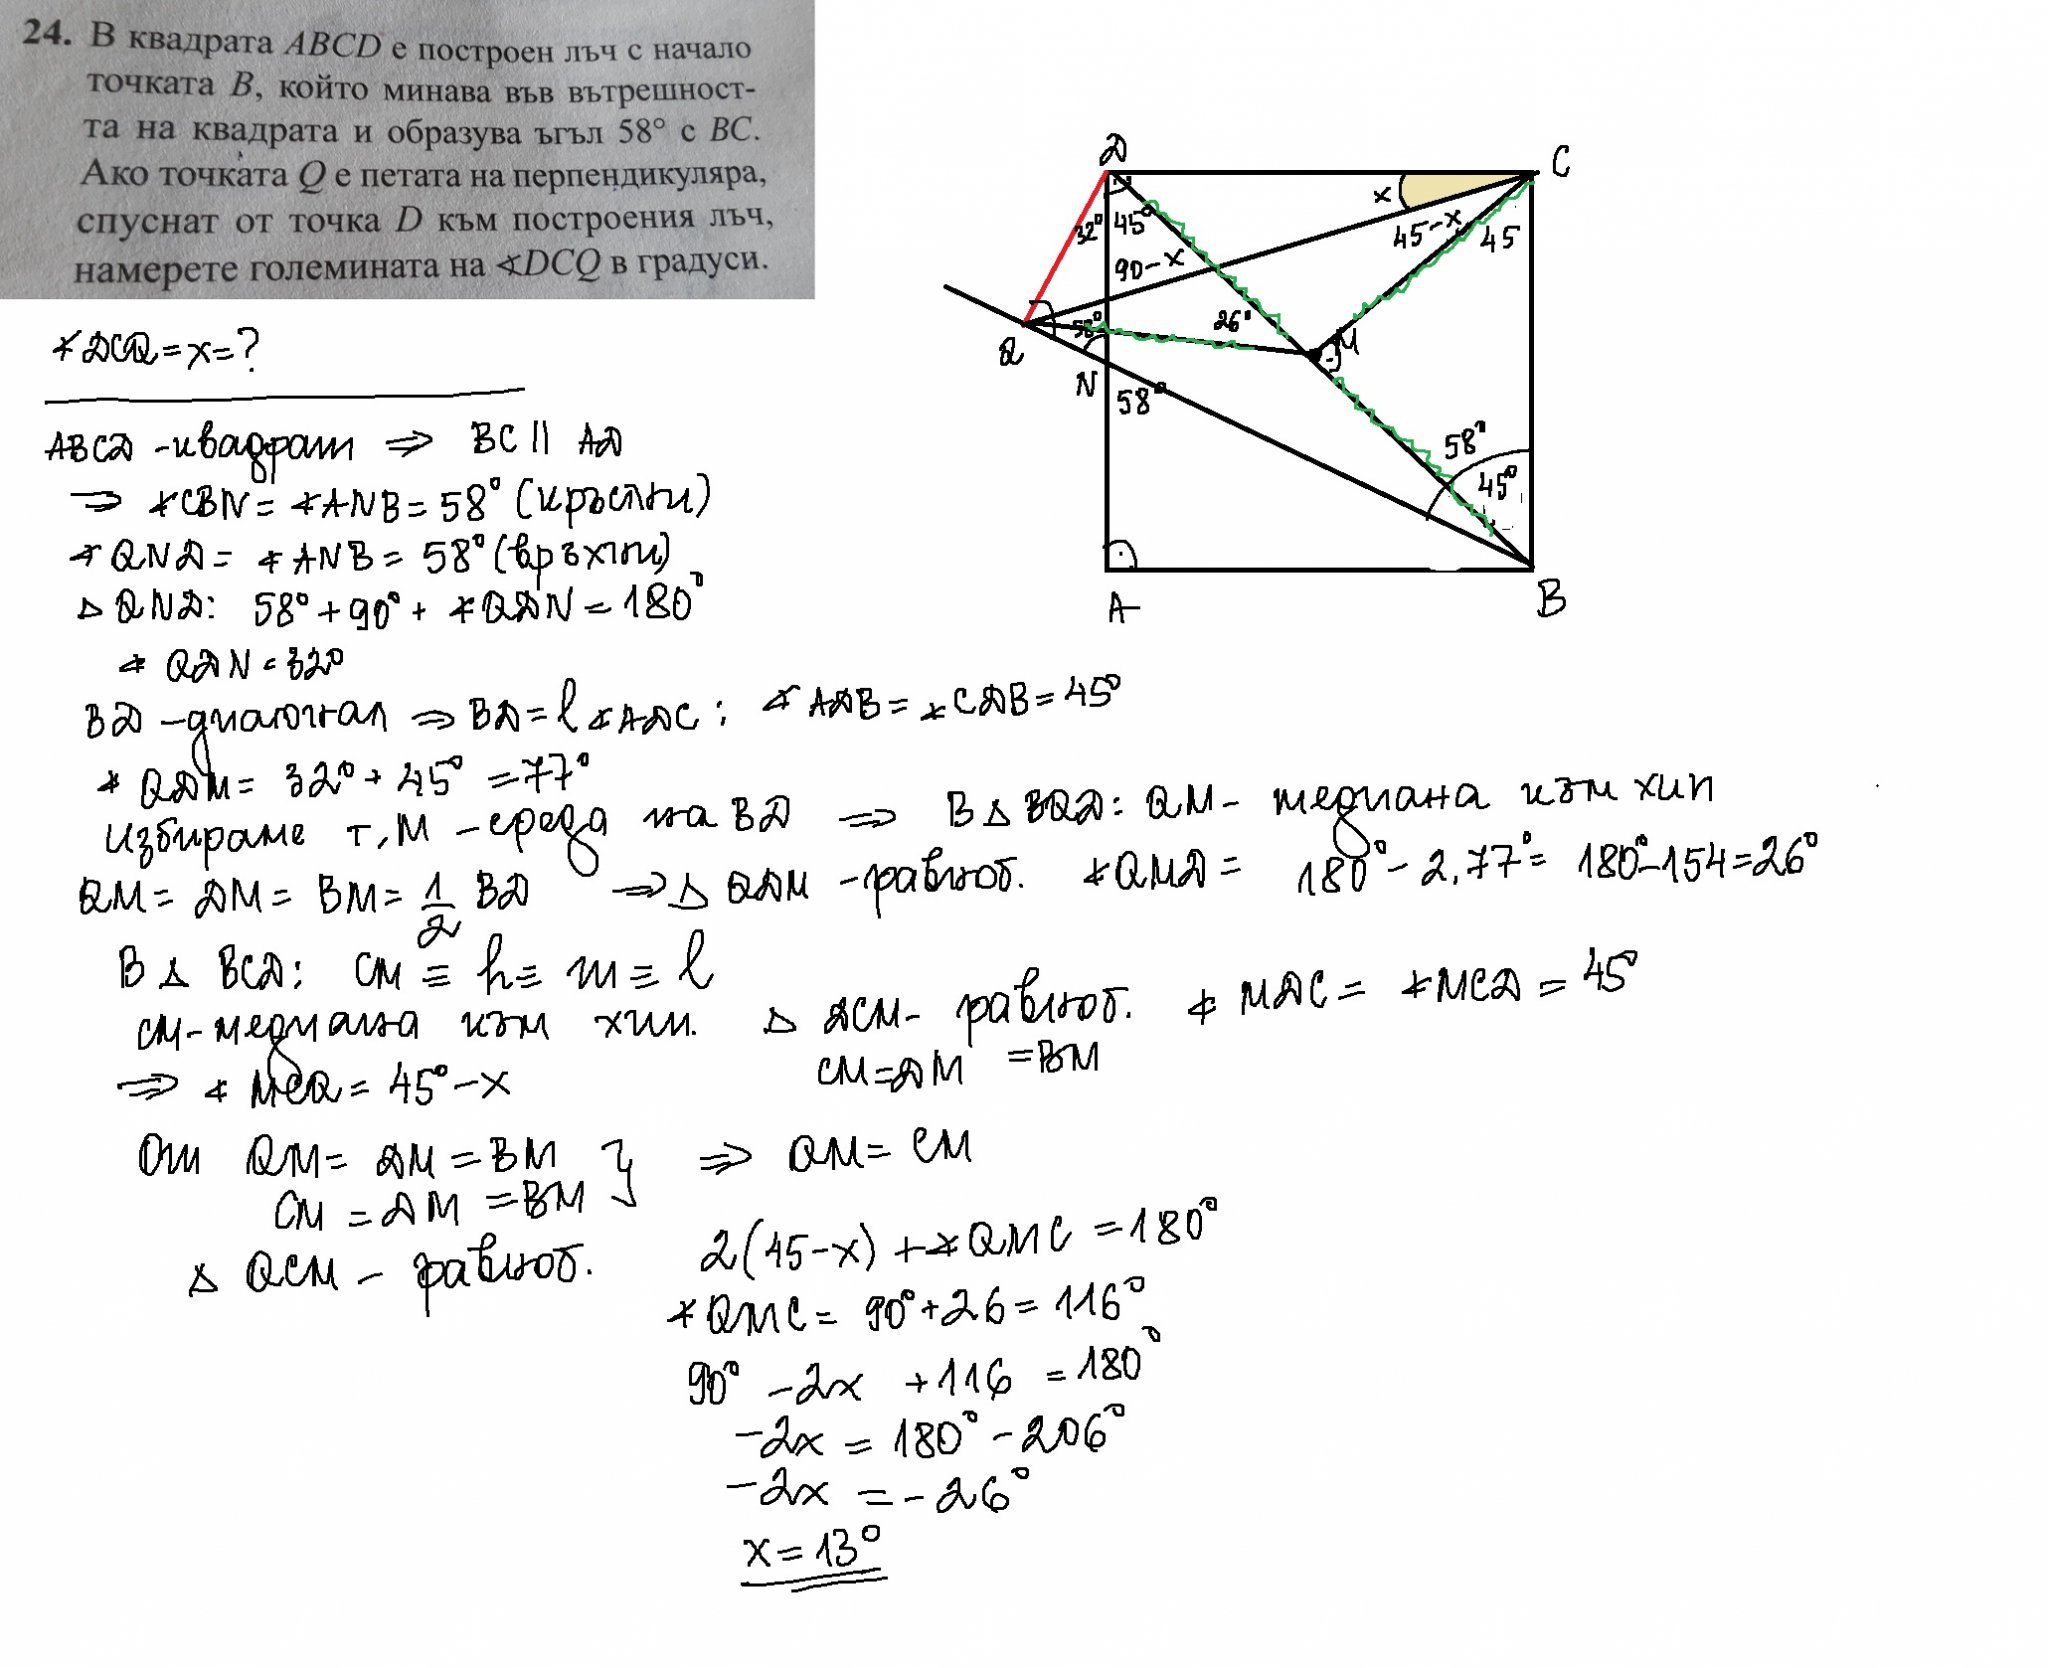 24. В квадрата ABCD е построен лъч с начало
точката B, който минава във вътрешност-
та на квадрата и образува ъгъл 58° с BC.
Ако точката Q е петата на перпендикуляра,
спуснат от точка D към построения лъч,
намерете големината на ∢DCQ в градуси.
∢DCQ = x = ?
ABCD - квадрат ⇒ BC || AD
⇒ ∢CBN = ∢ANB = 58° (кръстни)
∢QND = ∢ANB = 58° (връхни)
△ QND: 58° + 90° + ∢QDN = 180°
∢ QDN = 32°
BD - диагонал ⇒ BD = l ∢ADC : ∢ADB = ∢CDB = 45°
∢ QDM = 32° + 45° = 77°
избираме т. M - среда на BD ⇒ В △ BQD: QM - медиана към хип
QM = DM = BM = 1/2 BD ⇒ △ QDM - равноб. ∢QMD = 180° - 2.77° = 180° - 154 = 26°
В △ BCD: CM ≡ h ≡ m ≡ l
CM - медиана към хип. △ DCM - равноб. ∢ MDC = ∢MCD = 45°
CM = DM = BM
⇒ ∢ MCQ = 45° - x
От QM = DM = BM } ⇒ QM = CM
CM = DM = BM
△ QCM - равноб.
2(45 - x) + ∢QMC = 180°
∢QMC = 90° + 26 = 116°
90° - 2x + 116 = 180°
-2x = 180° - 206°
-2x = -26°
x = 13°
D
C
x
32°
45°
45-x
45
90-x
58°
26°
Q
M
N
58°
58°
45°
A
B